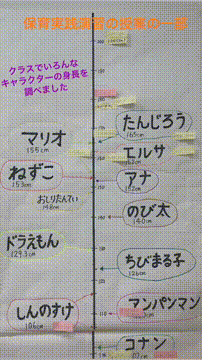 保育実践演習の授業の一部
クラスでいろんな
キャラクターの身長を
調べました
たんじろう
165cm
マリオ
155cm
エルサ
ねずこ
153cm
アナ
152cm
おしりたんてい
148cm
のび太
140cm
ドラえもん
129.3cm
ちびまる子
126cm
しんのすけ
106cm
アンパンマン
コナン